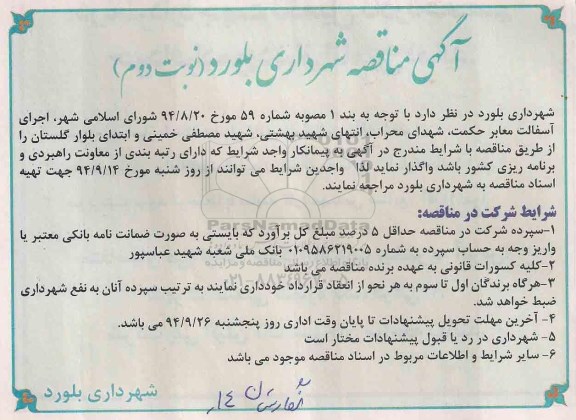 آگهی مناقصه شهرداری بلورد (نوبت دوم)
شهرداری بلورد در نظر دارد با توجه به بند ۱ مصوبه شماره ۵۹ مورخ ۹۴/۸/۲۰ شورای اسلامی شهر، اجرای
آسفالت معابر حکمت، شهدای محراب، انتهای شهید بهشتی، شهید مصطفی خمینی و ابتدای بلوار گلستان را
از طریق مناقصه با شرایط مندرج در آگهی به پیمانکار واجد شرایط که دارای رتبه بندی از معاونت راهبردی و
برنامه ریزی کشور باشد واگذار نماید لذا واجدین شرایط می توانند از روز شنبه مورخ ۹۴/۹/۱۴ جهت تهیه
اسناد مناقصه به شهرداری بلورد مراجعه نمایند.
شرایط شرکت در مناقصه:
۱-سپرده شرکت در مناقصه حداقل ۵ درصد مبلغ کل برآورد که بایستی به صورت ضمانت نامه بانکی معتبر یا
واریز وجه به حساب سپرده به شماره ۰۱۰۹۵۸۶۲۱۹۰۰۵ بانک ملی شعبه شهید عباسپور
۲-کلیه کسورات قانونی به عهده برنده مناقصه می باشد
۳-هرگاه برندگان اول تا سوم به هر نحو از انعقاد قرارداد خودداری نمایند به ترتیب سپرده آنان به نفع شهرداری
ضبط خواهد شد.
۴- آخرین مهلت تحویل پیشنهادات تا پایان وقت اداری روز پنجشنبه ۹۴/۹/۲۶ می باشد.
۵- شهرداری در رد یا قبول پیشنهادات مختار است
۶- سایر شرایط و اطلاعات مربوط در اسناد مناقصه موجود می باشد
شهرداری بلورد
ParsNamadData